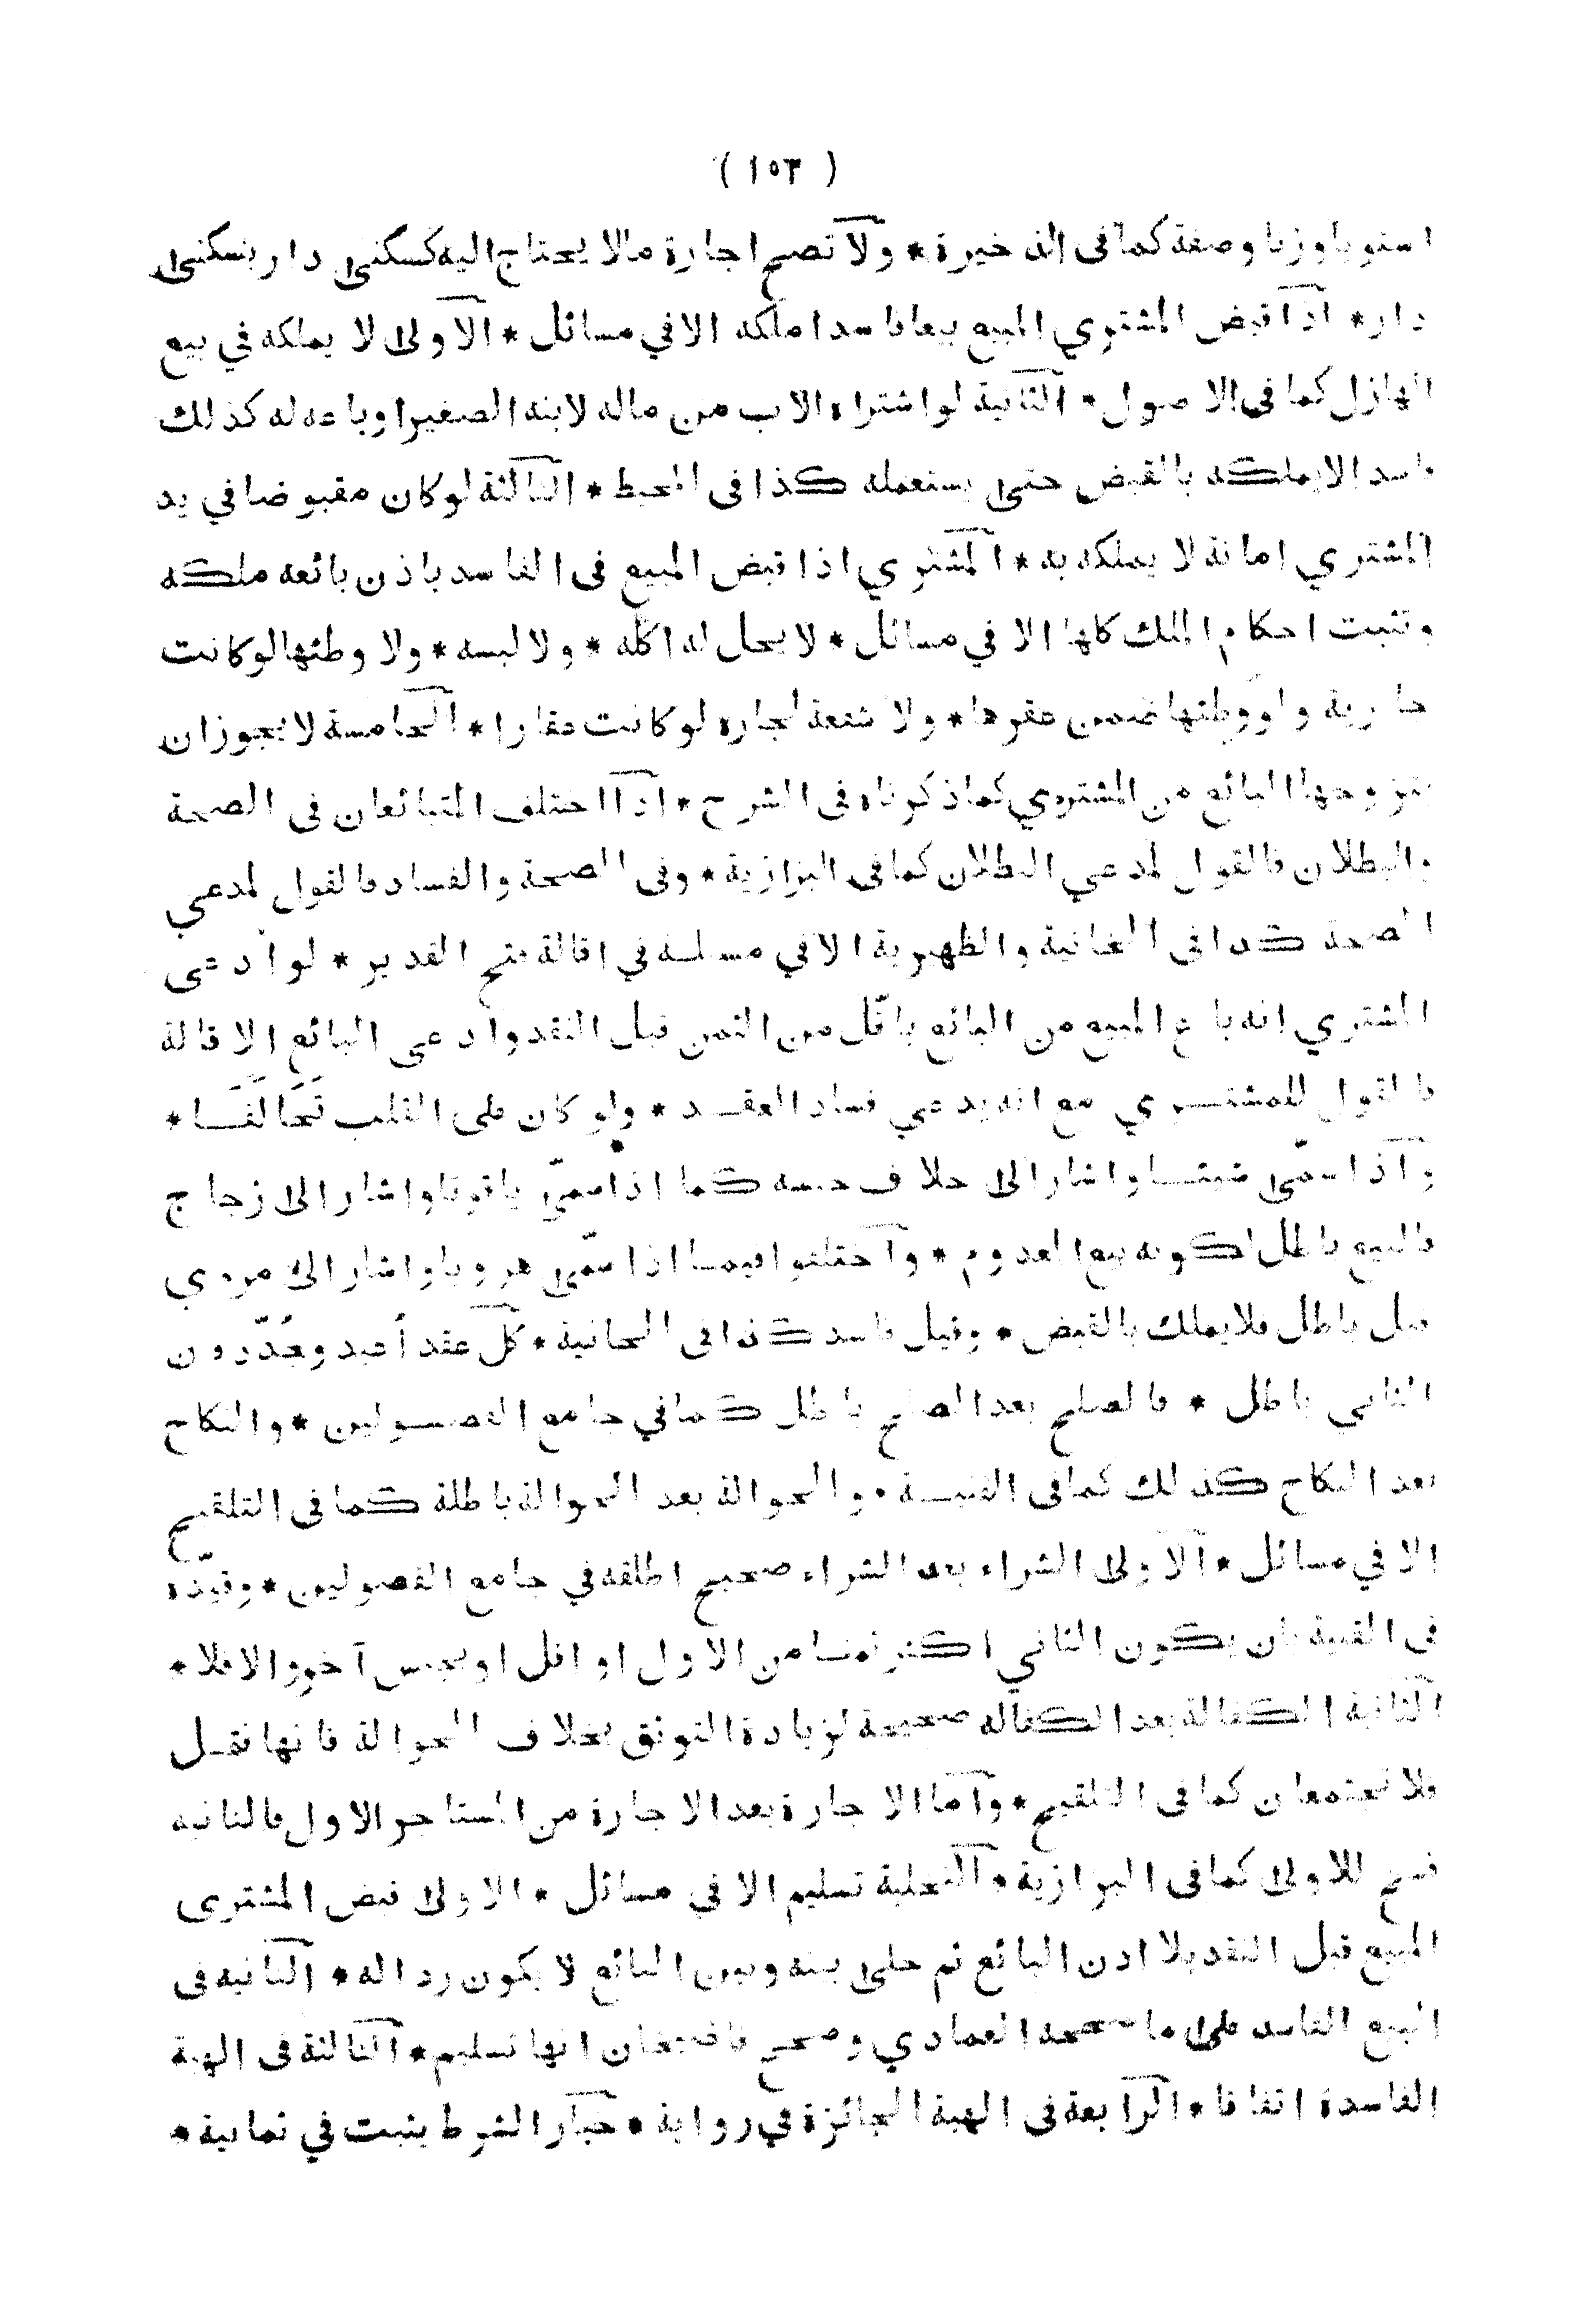 ( ١٥٣ )
استويا وزنا وصفة كما فى الذخيرة * ولا تصح اجارة مالا يحتاج اليه كسكنى دار بسكنى
دار * اذا قبض المشتري المبيع بيعا فاسدا ملكه الا في مسائل * الاولى لا يملكه في بيع
الهازل كما فى الاصول * الثانية لو اشتراه الاب من ماله لابنه الصغير او باعه له كذلك
فاسدا لا يملكه بالقبض حتى يستعمله كذا فى المحيط * الثالثة لو كان مقبوضا في يد
المشتري امانة لا يملكه به * المشتري اذا قبض المبيع فى الفاسد باذن بائعه ملكه
وتثبت احكام الملك كلها الا في مسائل * لا يحل له اكله * ولا لبسه * ولا وطئها لو كانت
جارية ولو وطئها ضمن عقرها * ولا شفعة لجاره لو كانت عقارا * الخامسة لا يجوز ان
يتزوجها البائع من المشتري كما ذكرناه فى الشرح * اذا اختلف المتبائعان فى الصحة
والبطلان فالقول لمدعي البطلان كما فى البزازية * وفى الصحة والفساد فالقول لمدعي
الصحة كذا فى الخانية والظهيرية الا في مسئلة في اقالة فتح القدير * لو ادعى
المشتري انه باع المبيع من البائع باقل من الثمن قبل النقد وادعى البائع الاقالة
فالقول للمشتري مع انه يدعي فساد العقد * ولو كان على القلب تَحَالَفَا *
واذا سمّى شيئا واشار الى خلاف جنسه كما اذا سمّى ياقوتا واشار الى زجاج
فالبيع باطل لكونه بيع المعدوم * واختلفوا فيما اذا سمّى هرويا واشار الى مروي
قيل باطل فلا يملك بالقبض * وقيل فاسد كذا فى الخانية * كل عقد أعيد وجُدّد فان
الثانى باطل * فالصلح بعد الصلح باطل كما في جامع الفصولين * والنكاح
بعد النكاح كذلك كما فى القنية * والحوالة بعد الحوالة باطلة كما فى التلقيح
الا في مسائل * الاولى الشراء بعد الشراء صحيح اطلقه في جامع الفصولين * وقيّده
فى القنية بان يكون الثاني اكثر ثمنا من الاول او اقل او بجنس آخر والا فلا *
الثانية الكفالة بعد الكفالة صحيحة لزيادة التوثق بخلاف الحوالة فانها نقل
فلا تجتمعان كما فى التلقيح * واما الاجارة بعد الاجارة من المستاجر الاول فالثانية
فسخ للاولى كما فى البزازية * التخلية تسليم الا في مسائل * الاولى قبض المشترى
المبيع قبل النقد بلا اذن البائع ثم خلى بينه وبين البائع لا يكون رداله * الثانية فى
البيع الفاسد على ما صححه العمادي وصحح قاضيخان انها تسليم * الثالثة فى الهبة
الفاسدة اتفاقا * الرابعة فى الهبة الجائزة في رواية * خيار الشرط يثبت في ثمانية *